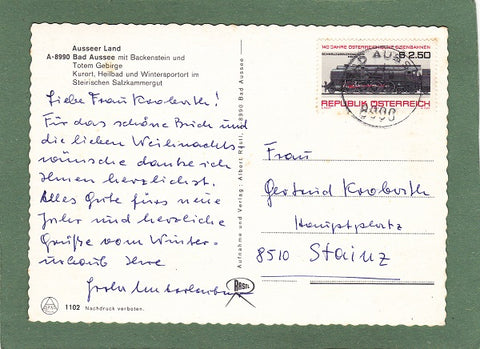 Ausseer Land
A-8990 Bad Aussee mit Backenstein und
Totem Gebirge
Kurort, Heilbad und Wintersportort im
Steirischen Salzkammergut
Liebe Frau
Für das schöne Buch und
die lieben Weihnachts
wünsche danke ich
Ihnen herzlichst.
Alles Gute fürs neue
Jahr und herzliche
Grüße vom Winter-
urlaub Ihre
1102 Nachdruck verboten.
Aufnahme und Verlag: Albert Rastl, A-8990 Bad Aussee
RASTL
140 JAHRE ÖSTERREICHISCHE EISENBAHNEN
S 2.50
REPUBLIK ÖSTERREICH
8990
Frau
Gertrud
Hauptplatz
8510 Stainz